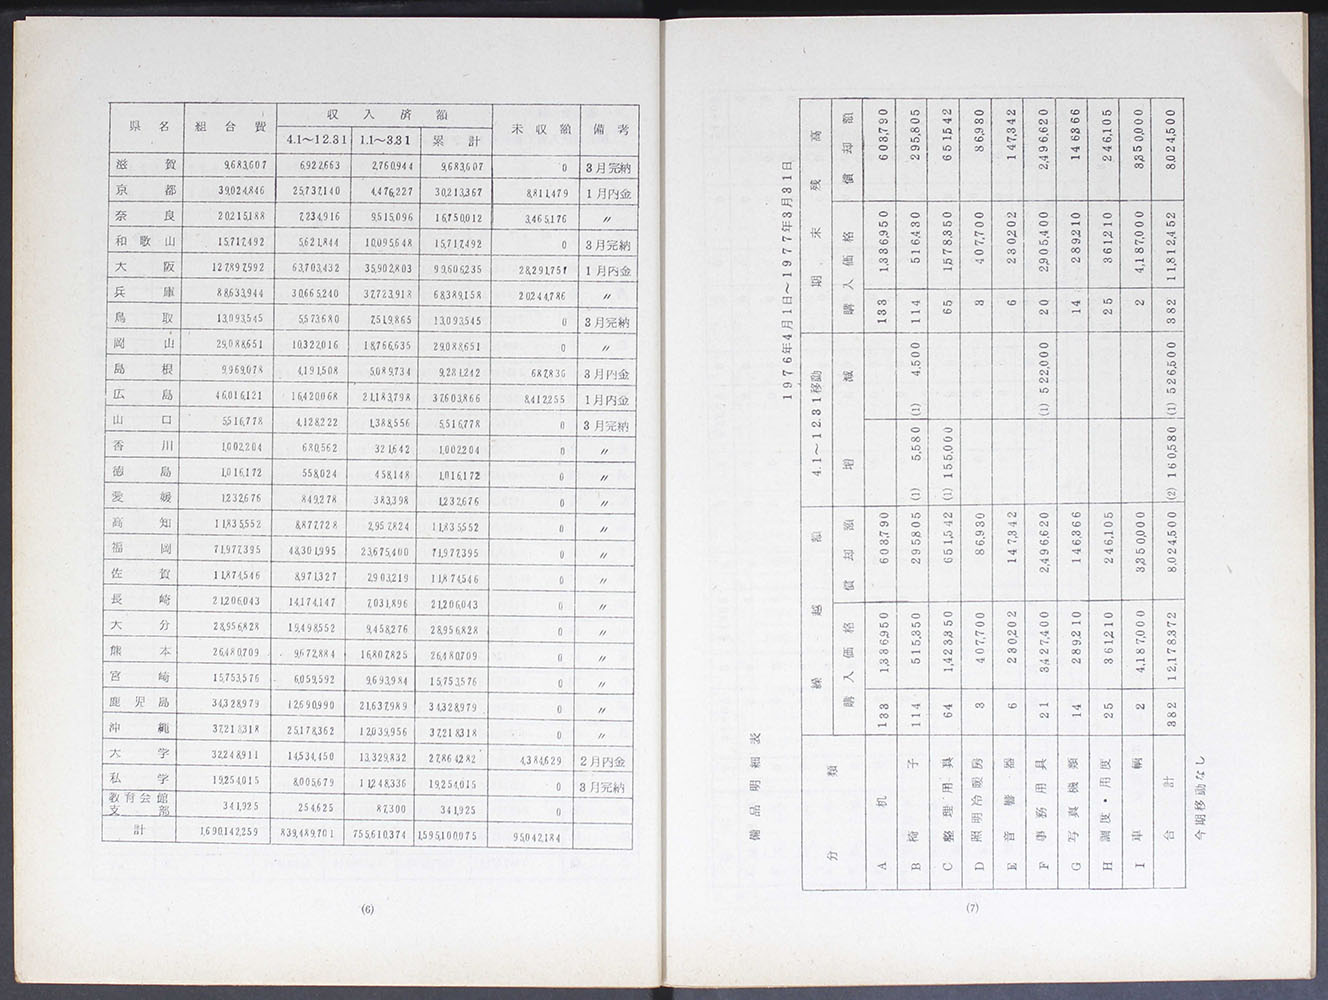 県名 組合費 収入済額 未収額 備考
4.1～12.31 1.1～3.31 累計
滋賀 9,683,607 6,922,663 2,760,944 9,683,607 0 3月完納
京都 39,024,846 25,737,140 4,476,227 30,213,367 8,811,479 1月内金
奈良 20,215,188 7,234,916 9,515,096 16,750,012 3,465,176 〃
和歌山 15,717,492 5,621,844 10,095,648 15,717,492 0 3月完納
大阪 127,897,992 63,703,432 35,902,803 99,606,235 28,291,757 1月内金
兵庫 88,633,944 30,665,240 37,723,918 68,389,158 20,244,786 〃
鳥取 13,093,545 5,573,680 7,519,865 13,093,545 0 3月完納
岡山 29,088,651 10,322,016 18,766,635 29,088,651 0 〃
島根 9,969,078 4,191,508 5,089,734 9,281,242 687,836 3月内金
広島 46,016,121 16,420,068 21,183,798 37,603,866 8,412,255 1月内金
山口 5,516,778 4,128,222 1,388,556 5,516,778 0 3月完納
香川 1,002,204 680,562 321,642 1,002,204 0 〃
徳島 1,016,172 558,024 458,148 1,016,172 0 〃
愛媛 1,232,676 849,278 383,398 1,232,676 0 〃
高知 11,835,552 8,877,728 2,957,824 11,835,552 0 〃
福岡 71,977,395 48,301,995 23,675,400 71,977,395 0 〃
佐賀 11,874,546 8,971,327 2,903,219 11,874,546 0 〃
長崎 21,206,043 14,174,147 7,031,896 21,206,043 0 〃
大分 28,956,828 19,498,552 9,458,276 28,956,828 0 〃
熊本 26,480,709 9,672,884 16,807,825 26,480,709 0 〃
宮崎 15,753,576 6,059,592 9,693,984 15,753,576 0 〃
鹿児島 34,328,979 12,690,990 21,637,989 34,328,979 0 〃
沖縄 37,218,318 25,178,362 12,039,956 37,218,318 0 〃
大学 32,248,911 14,534,450 13,329,832 27,864,282 4,384,629 2月内金
私学 19,254,015 8,005,679 11,248,336 19,254,015 0 3月完納
教育会館支部 341,925 254,625 87,300 341,925 0
計 1,690,142,259 839,489,701 755,610,374 1,595,100,075 95,042,184
(6)
備品明細表
1976年4月1日～1977年3月31日
分類 繰越額 4.1～12.31移動 期末残高
購入価格 償却額 増 減 購入価格 償却額
A 机 133 1,336,950 603,790 133 1,336,950 603,790
B 椅子 114 515,350 295,805 (1) 5,580 (1) 4,500 114 516,430 295,805
C 整理用具 64 1,423,350 651,542 (1) 155,000 65 1,578,350 651,542
D 照明冷暖房 3 407,700 86,980 3 407,700 86,980
E 音響器 6 230,202 147,342 6 230,202 147,342
F 事務用具 21 3,427,400 2,496,620 (1) 522,000 20 2,905,400 2,496,620
G 写真機類 14 289,210 146,366 14 289,210 146,366
H 調度・用度 25 361,210 246,105 25 361,210 246,105
I 車輌 2 4,187,000 3,350,000 2 4,187,000 3,350,000
合計 382 12,178,372 8,024,500 (2) 160,580 (1) 526,500 382 11,812,452 8,024,500
今期移動なし
(7)